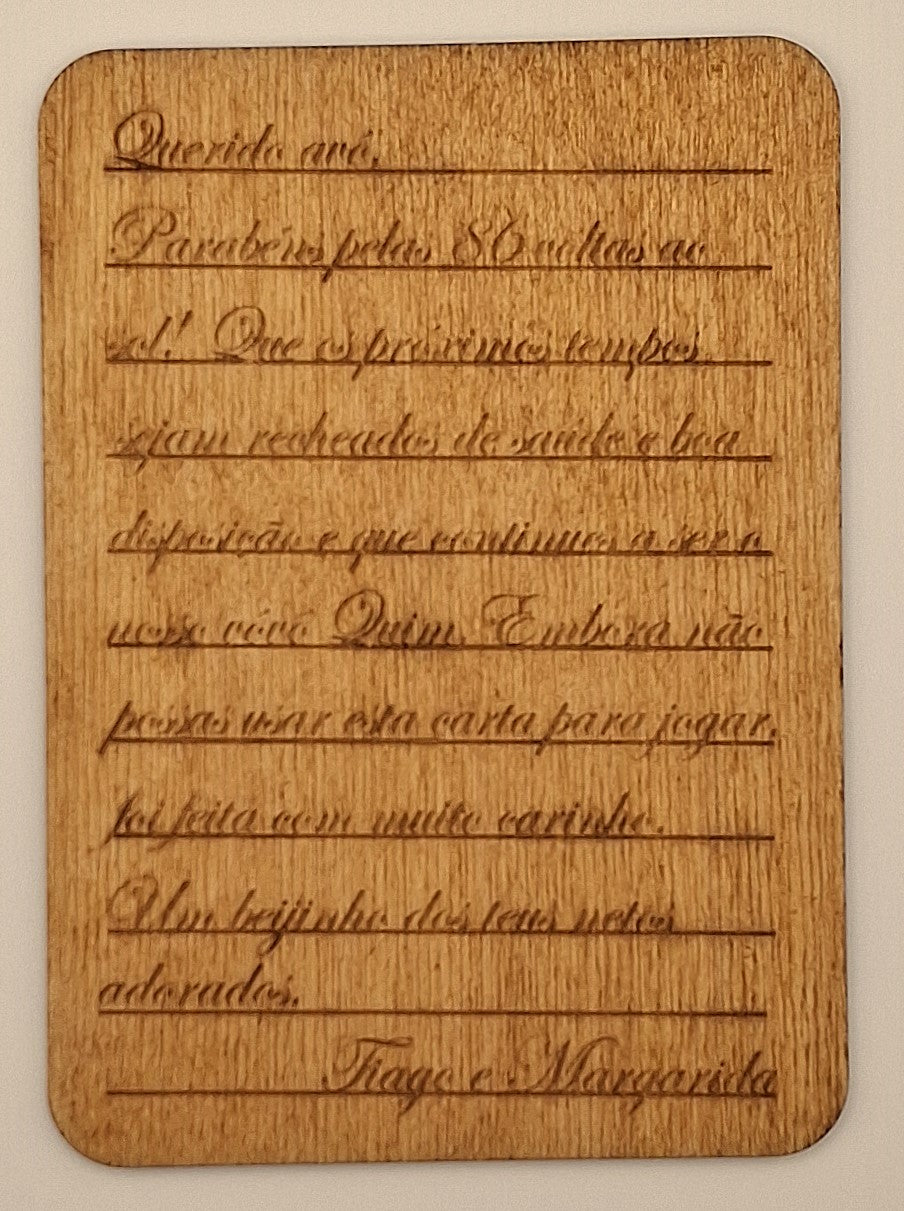 Querido avô,
Parabéns pelas 86 voltas ao
sol! Que os próximos tempos
sejam recheados de saúde e boa
disposição e que continues a ser o
nosso vóvó Quim. Embora não
possas usar esta carta para jogar,
foi feita com muito carinho.
Um beijinho dos teus netos
adorados.
Tiago e Margarida